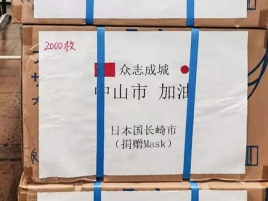 2000枚
众志成城
中山市 加油
日本国长崎市
(捐赠Mask)